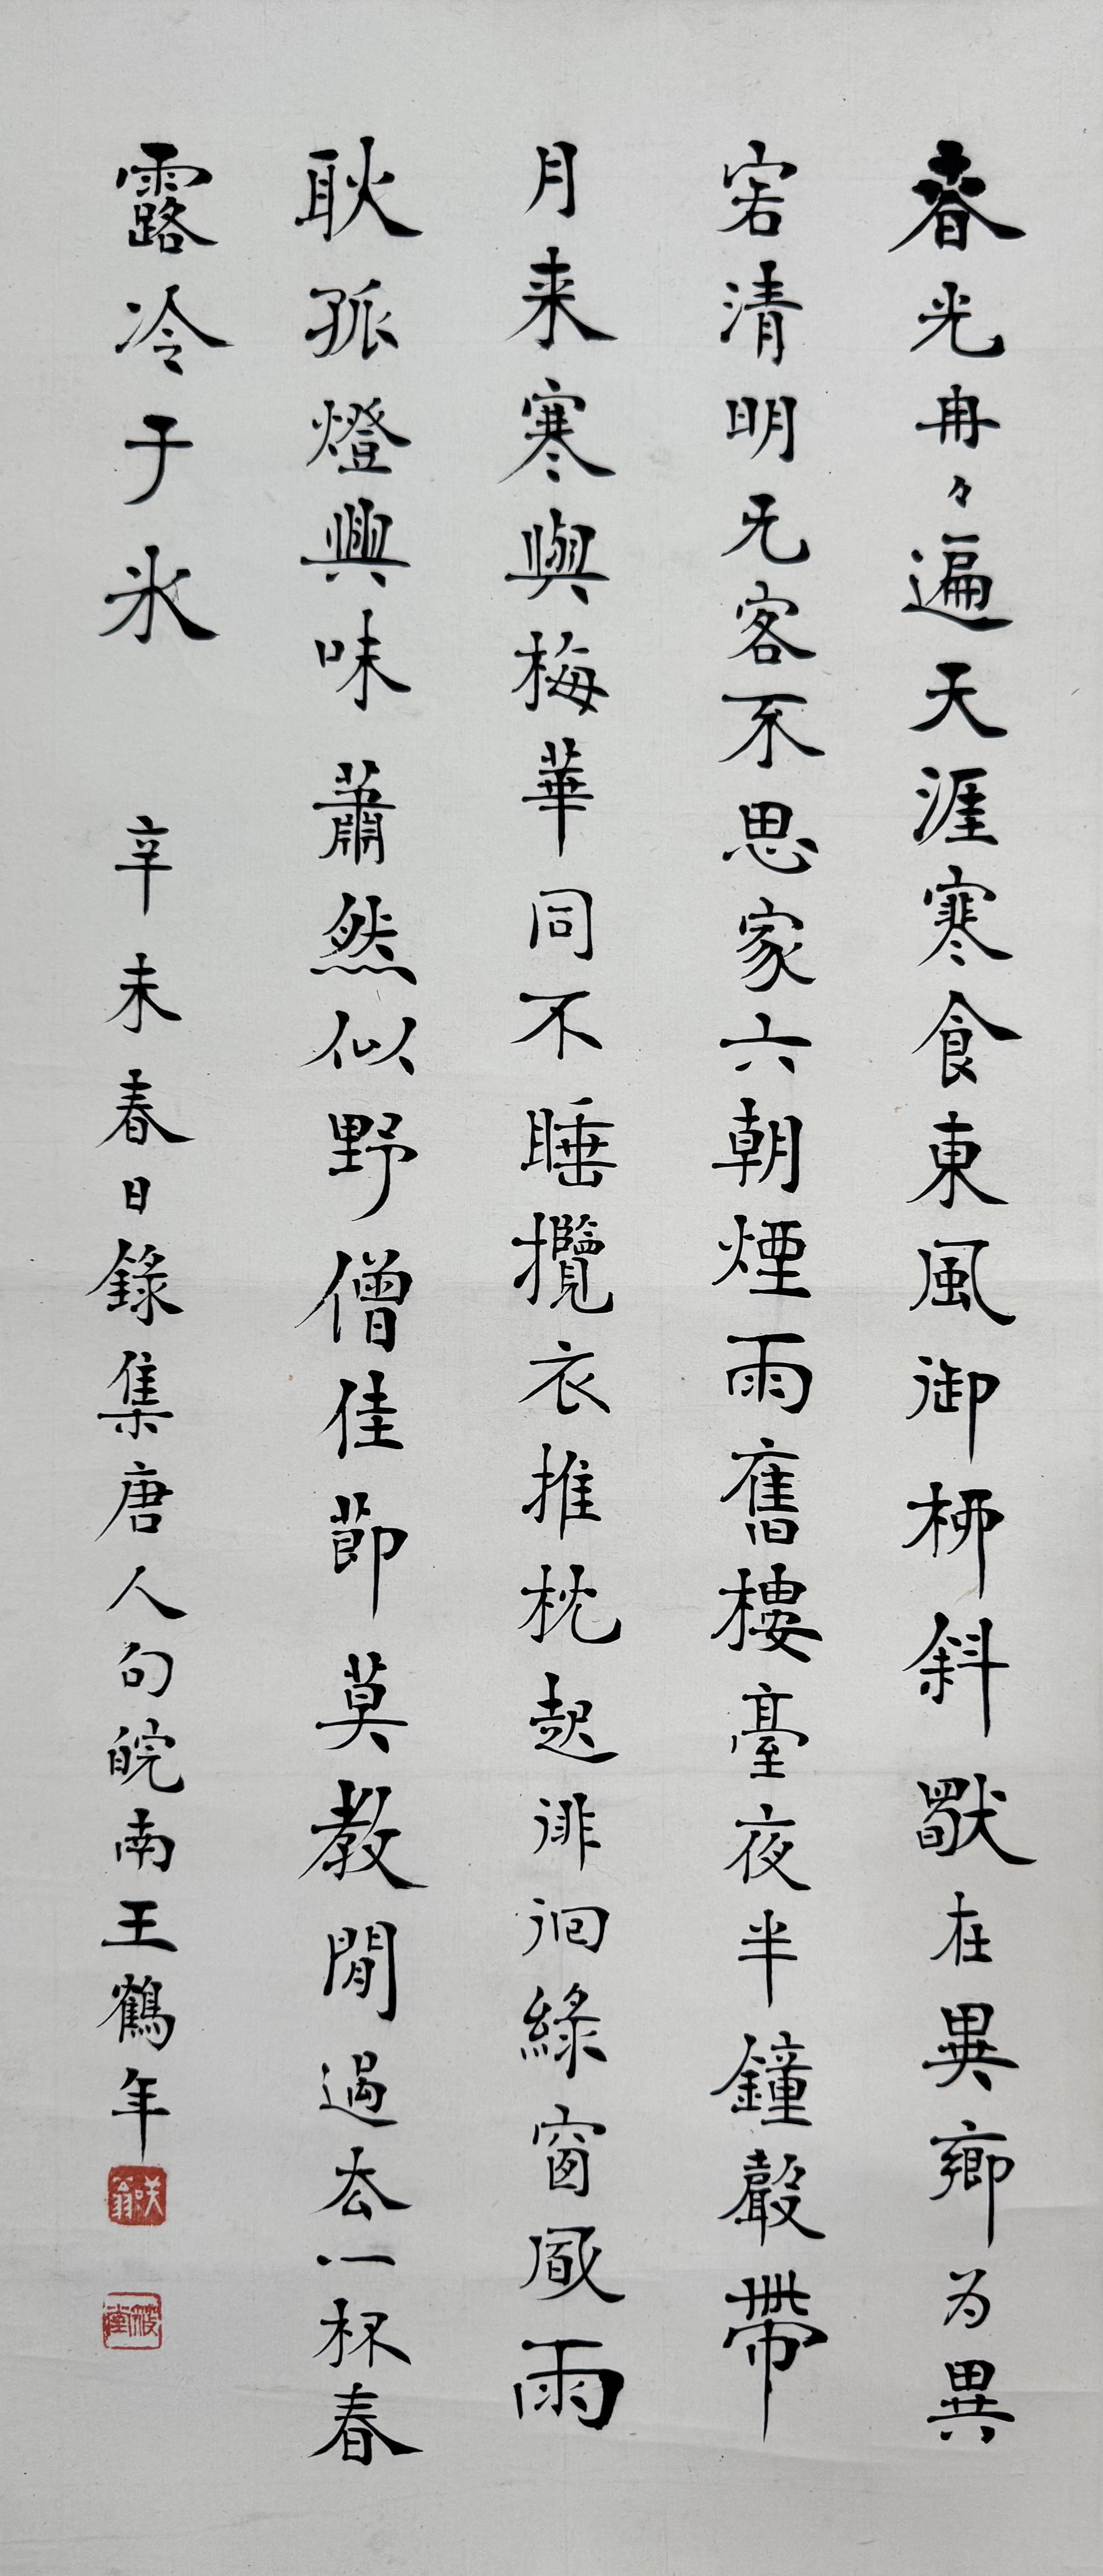 春光冉々遍天涯寒食東風御柳斜獸在異鄉为異
客清明无客不思家六朝煙雨舊樓臺夜半鐘聲帶
月来寒與梅華同不睡攬衣推枕起徘徊綠窗風雨
耿孤燈興味蕭然似野僧佳節莫教閒過去一杯春
露冷于冰
辛未春日錄集唐人句皖南王鶴年
笑翁